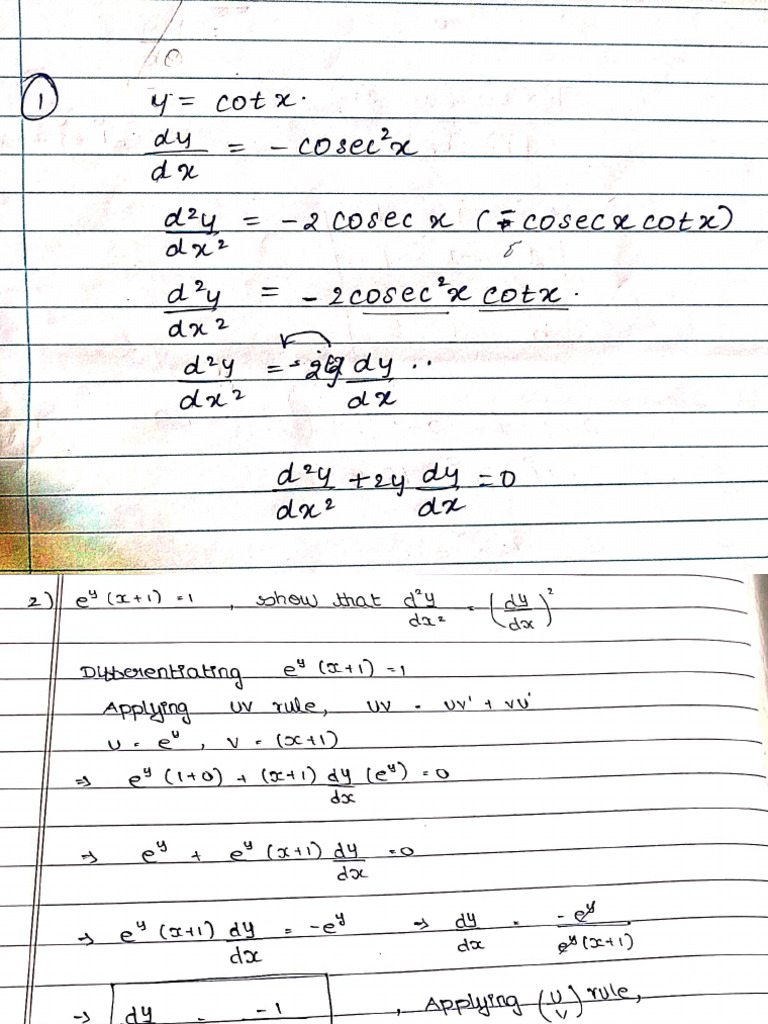 1 y = cot x.
dy/dx = - cosec²x
d²y/dx² = -2 cosec x (- cosec x cot x)
d²y/dx² = - 2cosec²x cotx.
d²y/dx² = -2y dy/dx ..
d²y/dx² + 2y dy/dx = 0
2) e^y (x+1) = 1 , show that d²y/dx² = (dy/dx)²
Differentiating e^y (x+1) = 1
Applying uv rule, uv = uv' + vu'
u = e^y , v = (x+1)
⇒ e^y (1+0) + (x+1) dy/dx (e^y) = 0
⇒ e^y + e^y (x+1) dy/dx = 0
⇒ e^y (x+1) dy/dx = -e^y ⇒ dy/dx = -e^y/e^y (x+1)
⇒ dy = -1 , Applying (u/v) rule,